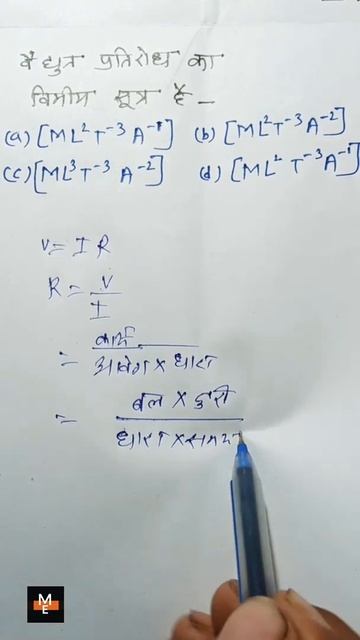 वैद्युत प्रतिरोध का
विमीय सूत्र है -
(a) [ML² T⁻³ A⁻¹] (b) [ML² T⁻³ A⁻²]
(c) [ML³ T⁻³ A⁻²] (d) [ML² T⁻³ A⁻¹]
V = I R
R = V
I
= कार्य
आवेग × धारा
= बल × दूरी
धारा × समय
ME